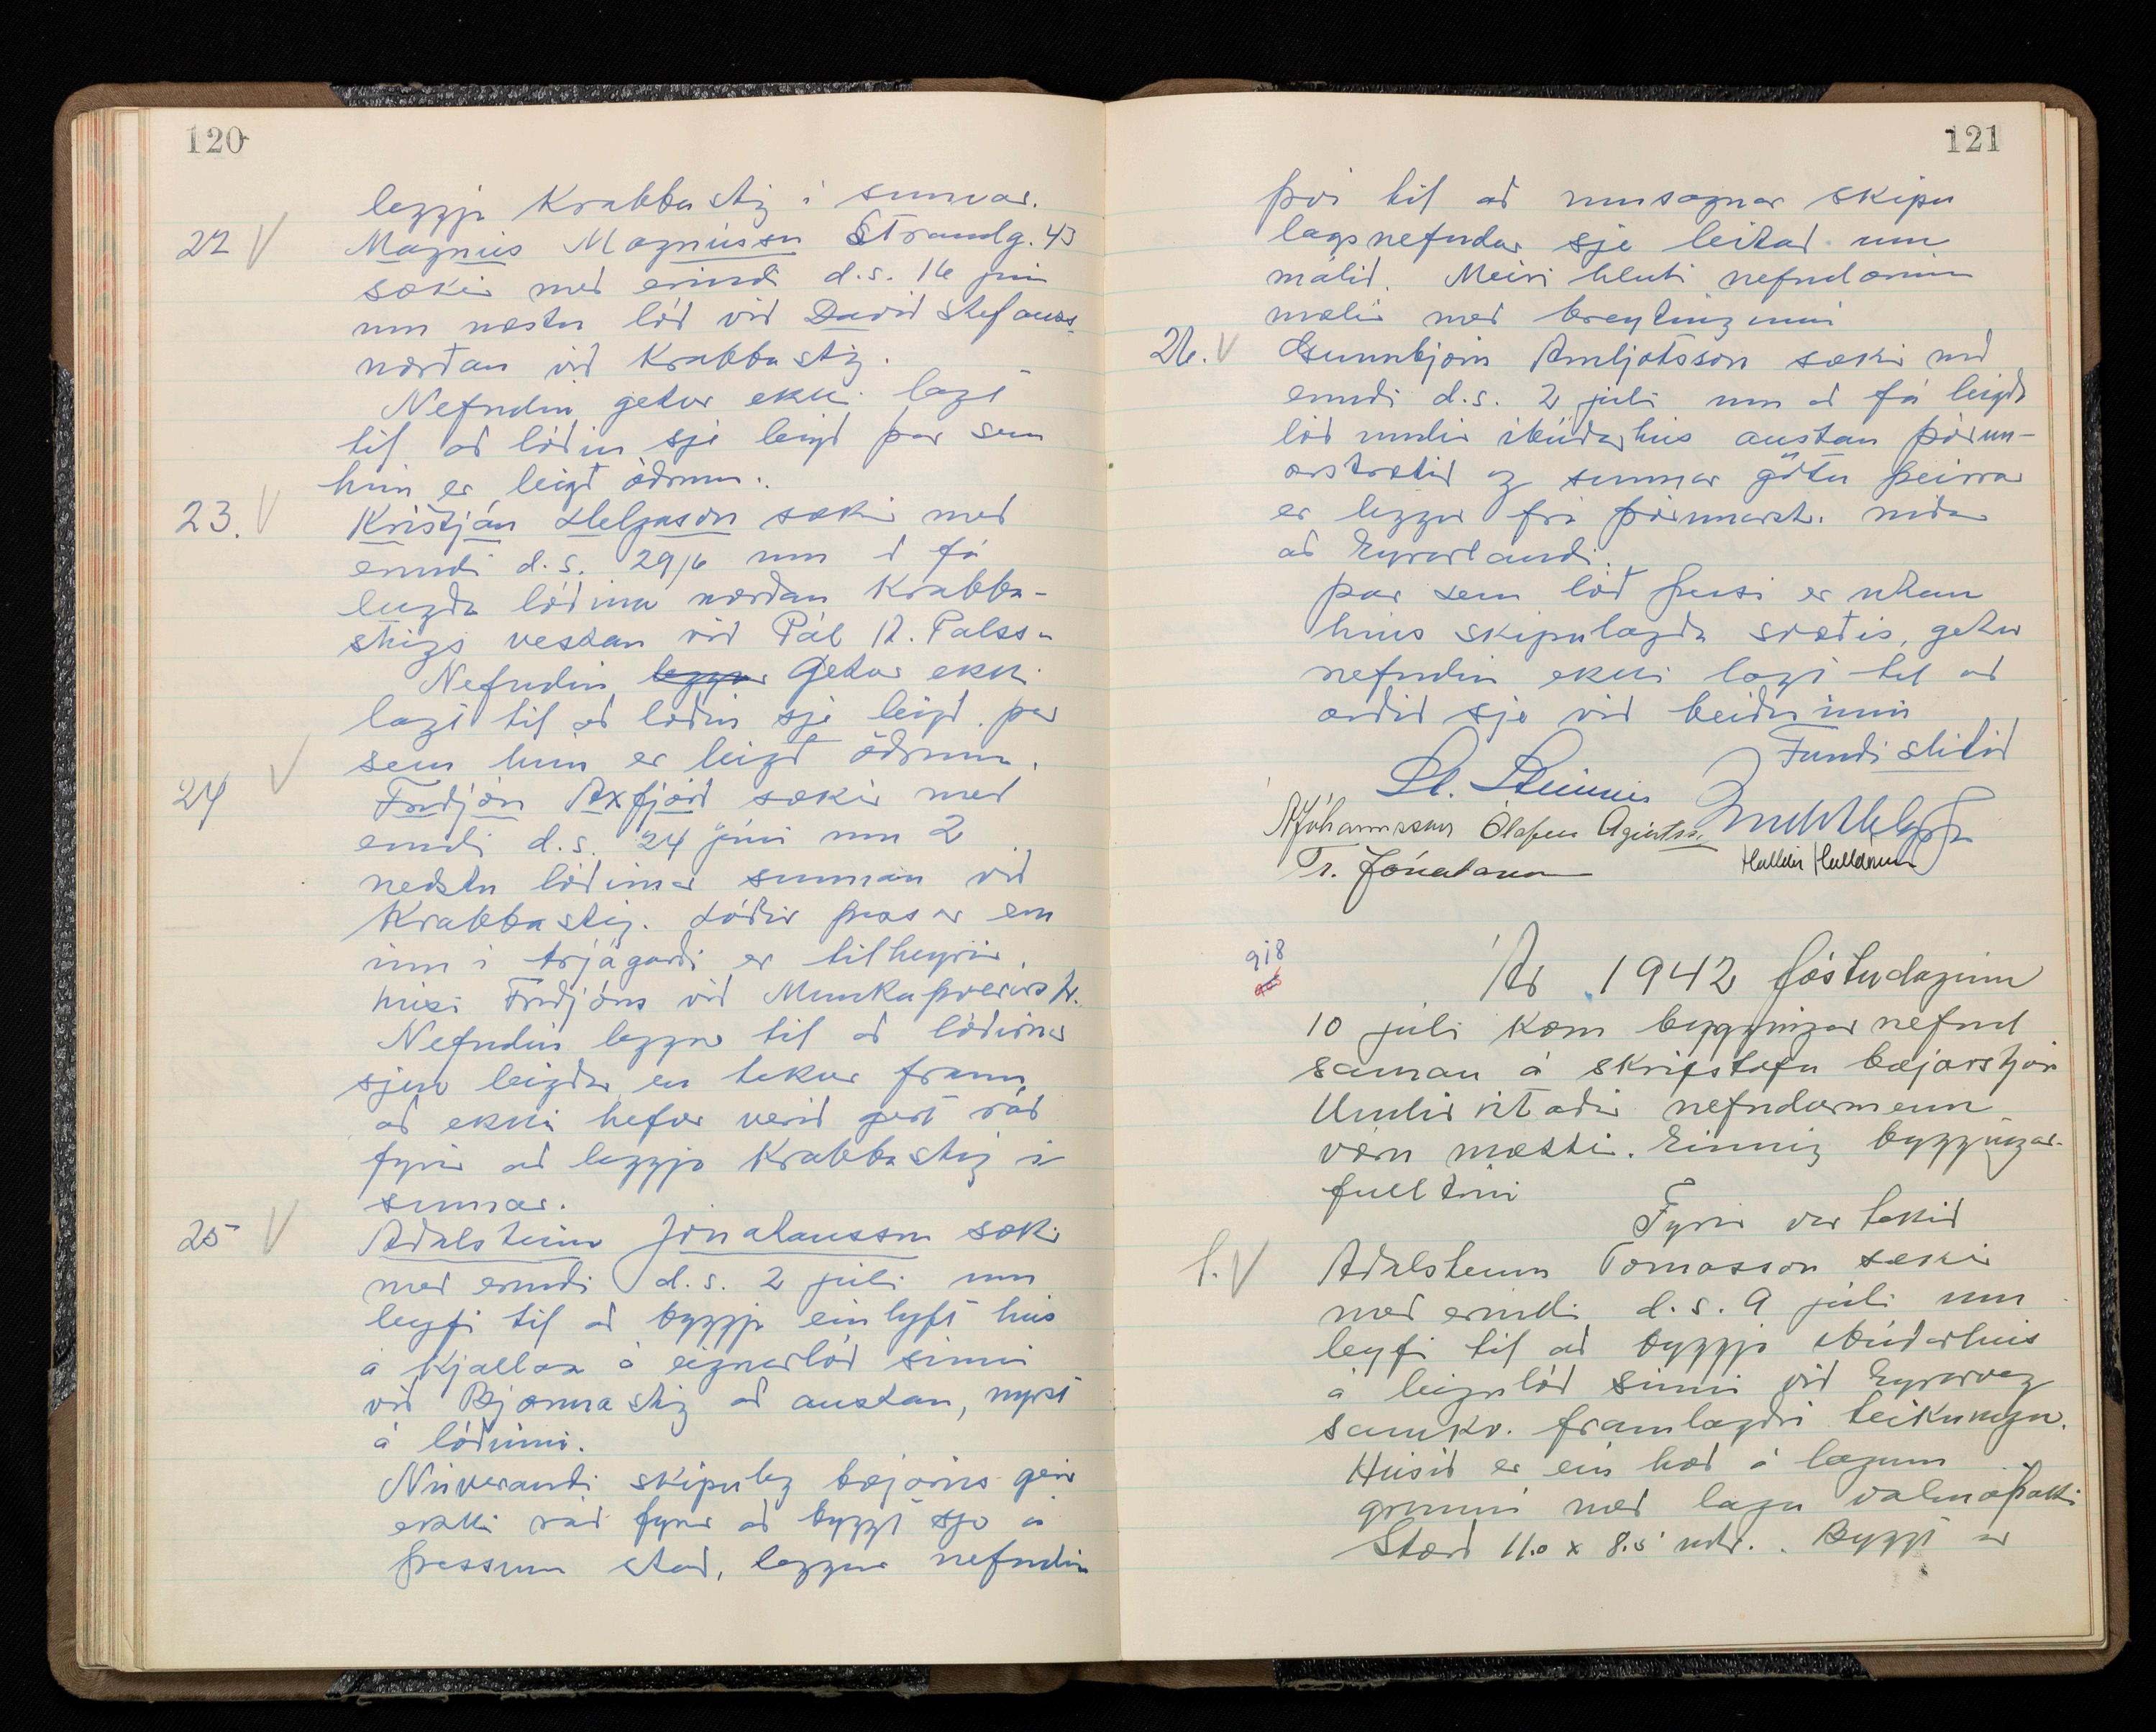 120
leggja Krabbastíg í sumar.
22 V Magnús Magnússon Strandg. 43
sækir með erindi d.s. 16 júní
um næstu lóð við Davíð Stefánss.
norðan við Krabbastíg.
Nefndin getur ekki lagt
til að lóðin sje leigð þar sem
hún er leigð öðrum.
23. V Kristján Helgason sækir með
erindi d.s. 29/6 um að fá
leigða lóðina norðan Krabba-
stígs vestan við Pál R. Pálsson
Nefndin leggur getur ekki
lagt til að lóðin sje leigð þar
sem hún er leigð öðrum.
24 V Friðjón Axfjörð sækir með
erindi d.s. 24 júní um 2
neðstu lóðirnar sunnan við
Krabbastíg. Lóðir þær er
inn í trjágarði er tilheyrir
húsi Friðjóns við Munkaþverárstr.
Nefndin leggur til að lóðirnar
sjeu leigðar en tekur fram
að ekki hefur verið gert ráð
fyrir að leggja Krabbastíg í
sumar.
25 V Aðalsteinn Jónatansson sækir
með erindi d.s. 2 júlí um
leyfi til að byggja einlyft hús
á kjallara á eignarlóð sinni
við Bjarmastíg að austan, nyrst
á lóðinni.
Núverandi skipulag bæjarins gerir
ekki ráð fyrir að byggt sje á
þessum stað, leggur nefndin
121
því til að umsagnar skipu
lagsnefndar sje leitað um
málið. Meiri hluti nefndarinnar
mælir með breytingunni
26. V Gunnbjörn Arnljótsson sækir með
erindi d.s. 2 júlí um að fá leigða
lóð undir íbúðarhús austan Þórunn-
arstrætis og sunnar götu þeirra
er leggur frá Þórunnarstr. niður
að Eyrarlandi.
Þar sem lóð þessi er utan
hins skipulagða svæðis, getur
nefndin ekki lagt til að
orðið sje við beiðninni
Fundi slitið
St. Steinsen
AJóhannsson Ólafur Ágústss.
Tr. Jónatansson Halldór Halldórsson
918
Ár 1942 föstudaginn
10 júlí kom bygginganefnd
saman á skrifstofu bæjarstjóra
Undirritaðir nefndarmenn
voru mættir. Einnig bygginga-
fulltrúi
Fyrir var tekið
1. V Aðalsteinn Tómasson sækir
með erindi d.s. 9 júlí um
leyfi til að byggja íbúðarhús
á leigulóð sinni við Eyrarveg
samkv. framlagðri teikningu.
Húsið er ein hæð á lágum
grunni með lágu valmaþaki
Stærð 11.0 x 8.5 mtr. Byggt úr